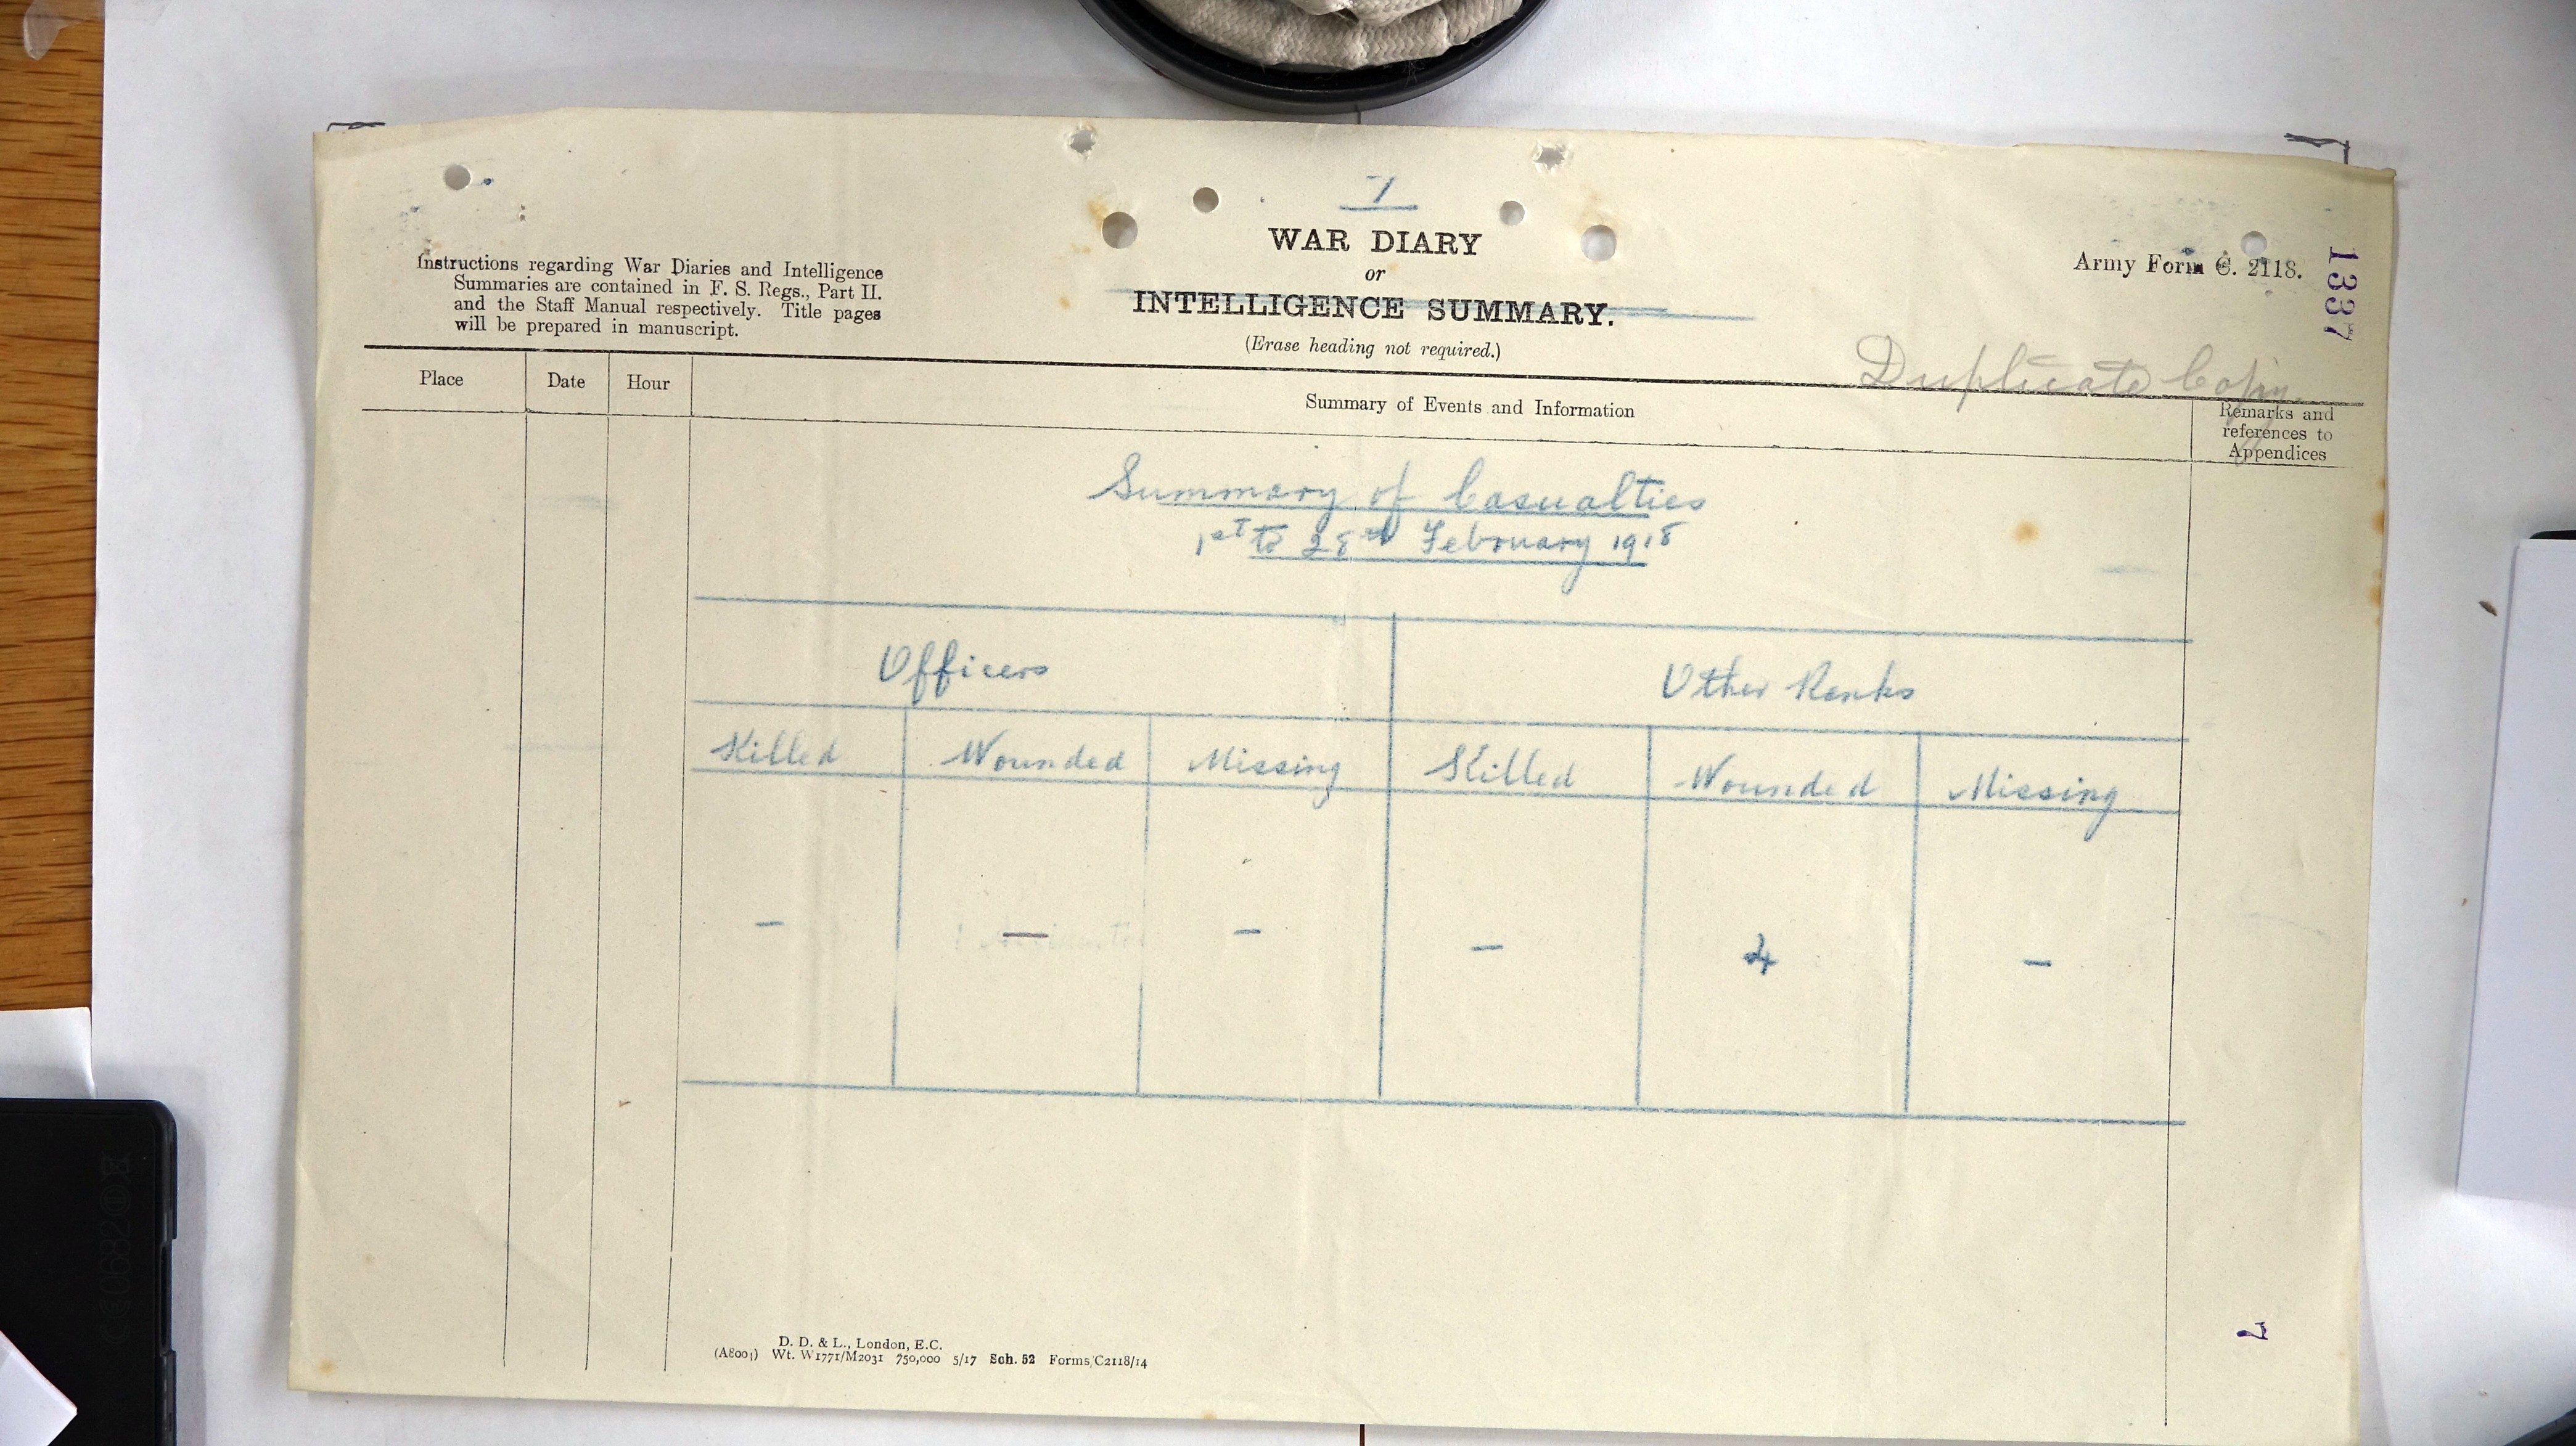 7
WAR DIARY
or
INTELLIGENCE SUMMARY.
(Erase heading not required.)
Instructions regarding War Diaries and Intelligence
Summaries are contained in F. S. Regs., Part II.
and the Staff Manual respectively. Title pages
will be prepared in manuscript.
Army Form C. 2118.
1337
Duplicate Copy
Place Date Hour Summary of Events and Information
Remarks and
references to
Appendices
Summary of Casualties
1st to 28th February 1918
Officers Other Ranks
Killed Wounded Missing Killed Wounded Missing
– – – – 4 –
7
D. D. & L., London, E.C.
Wt. W1771/M2031 750,000 5/17 Sch. 52 Forms/C2118/14